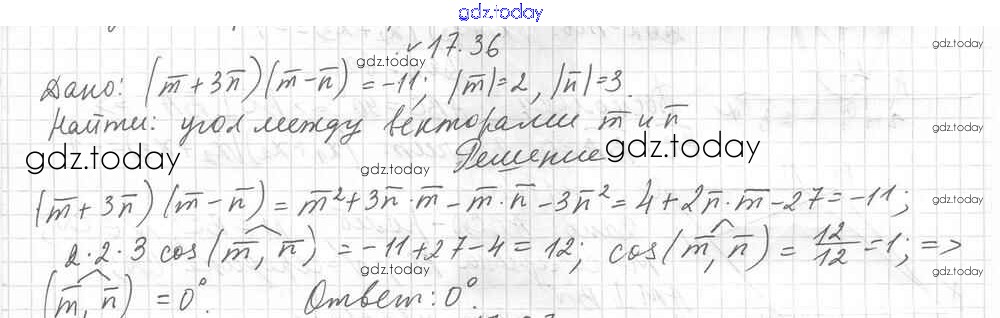 gdz.today
№ 17.36
gdz.today gdz.today
Дано: (m̅ + 3n̅)(m̅ − n̅) = −11; |m̅| = 2, |n̅| = 3.
Найти: угол между векторами m̅ и n̅
gdz.today
gdz.today gdz.today gdz.today gdz.today
Решение
(m̅ + 3n̅)(m̅ − n̅) = m̅² + 3n̅ · m̅ − m̅ · n̅ − 3n̅² = 4 + 2n̅ · m̅ − 27 = −11;
gdz.today
2 · 2 · 3 cos(m̅, n̅) = −11 + 27 − 4 = 12; cos(m̅, n̅) = 12/12 = 1; =>
gdz.today gdz.today
(m̅, n̅) = 0°. Ответ: 0°.